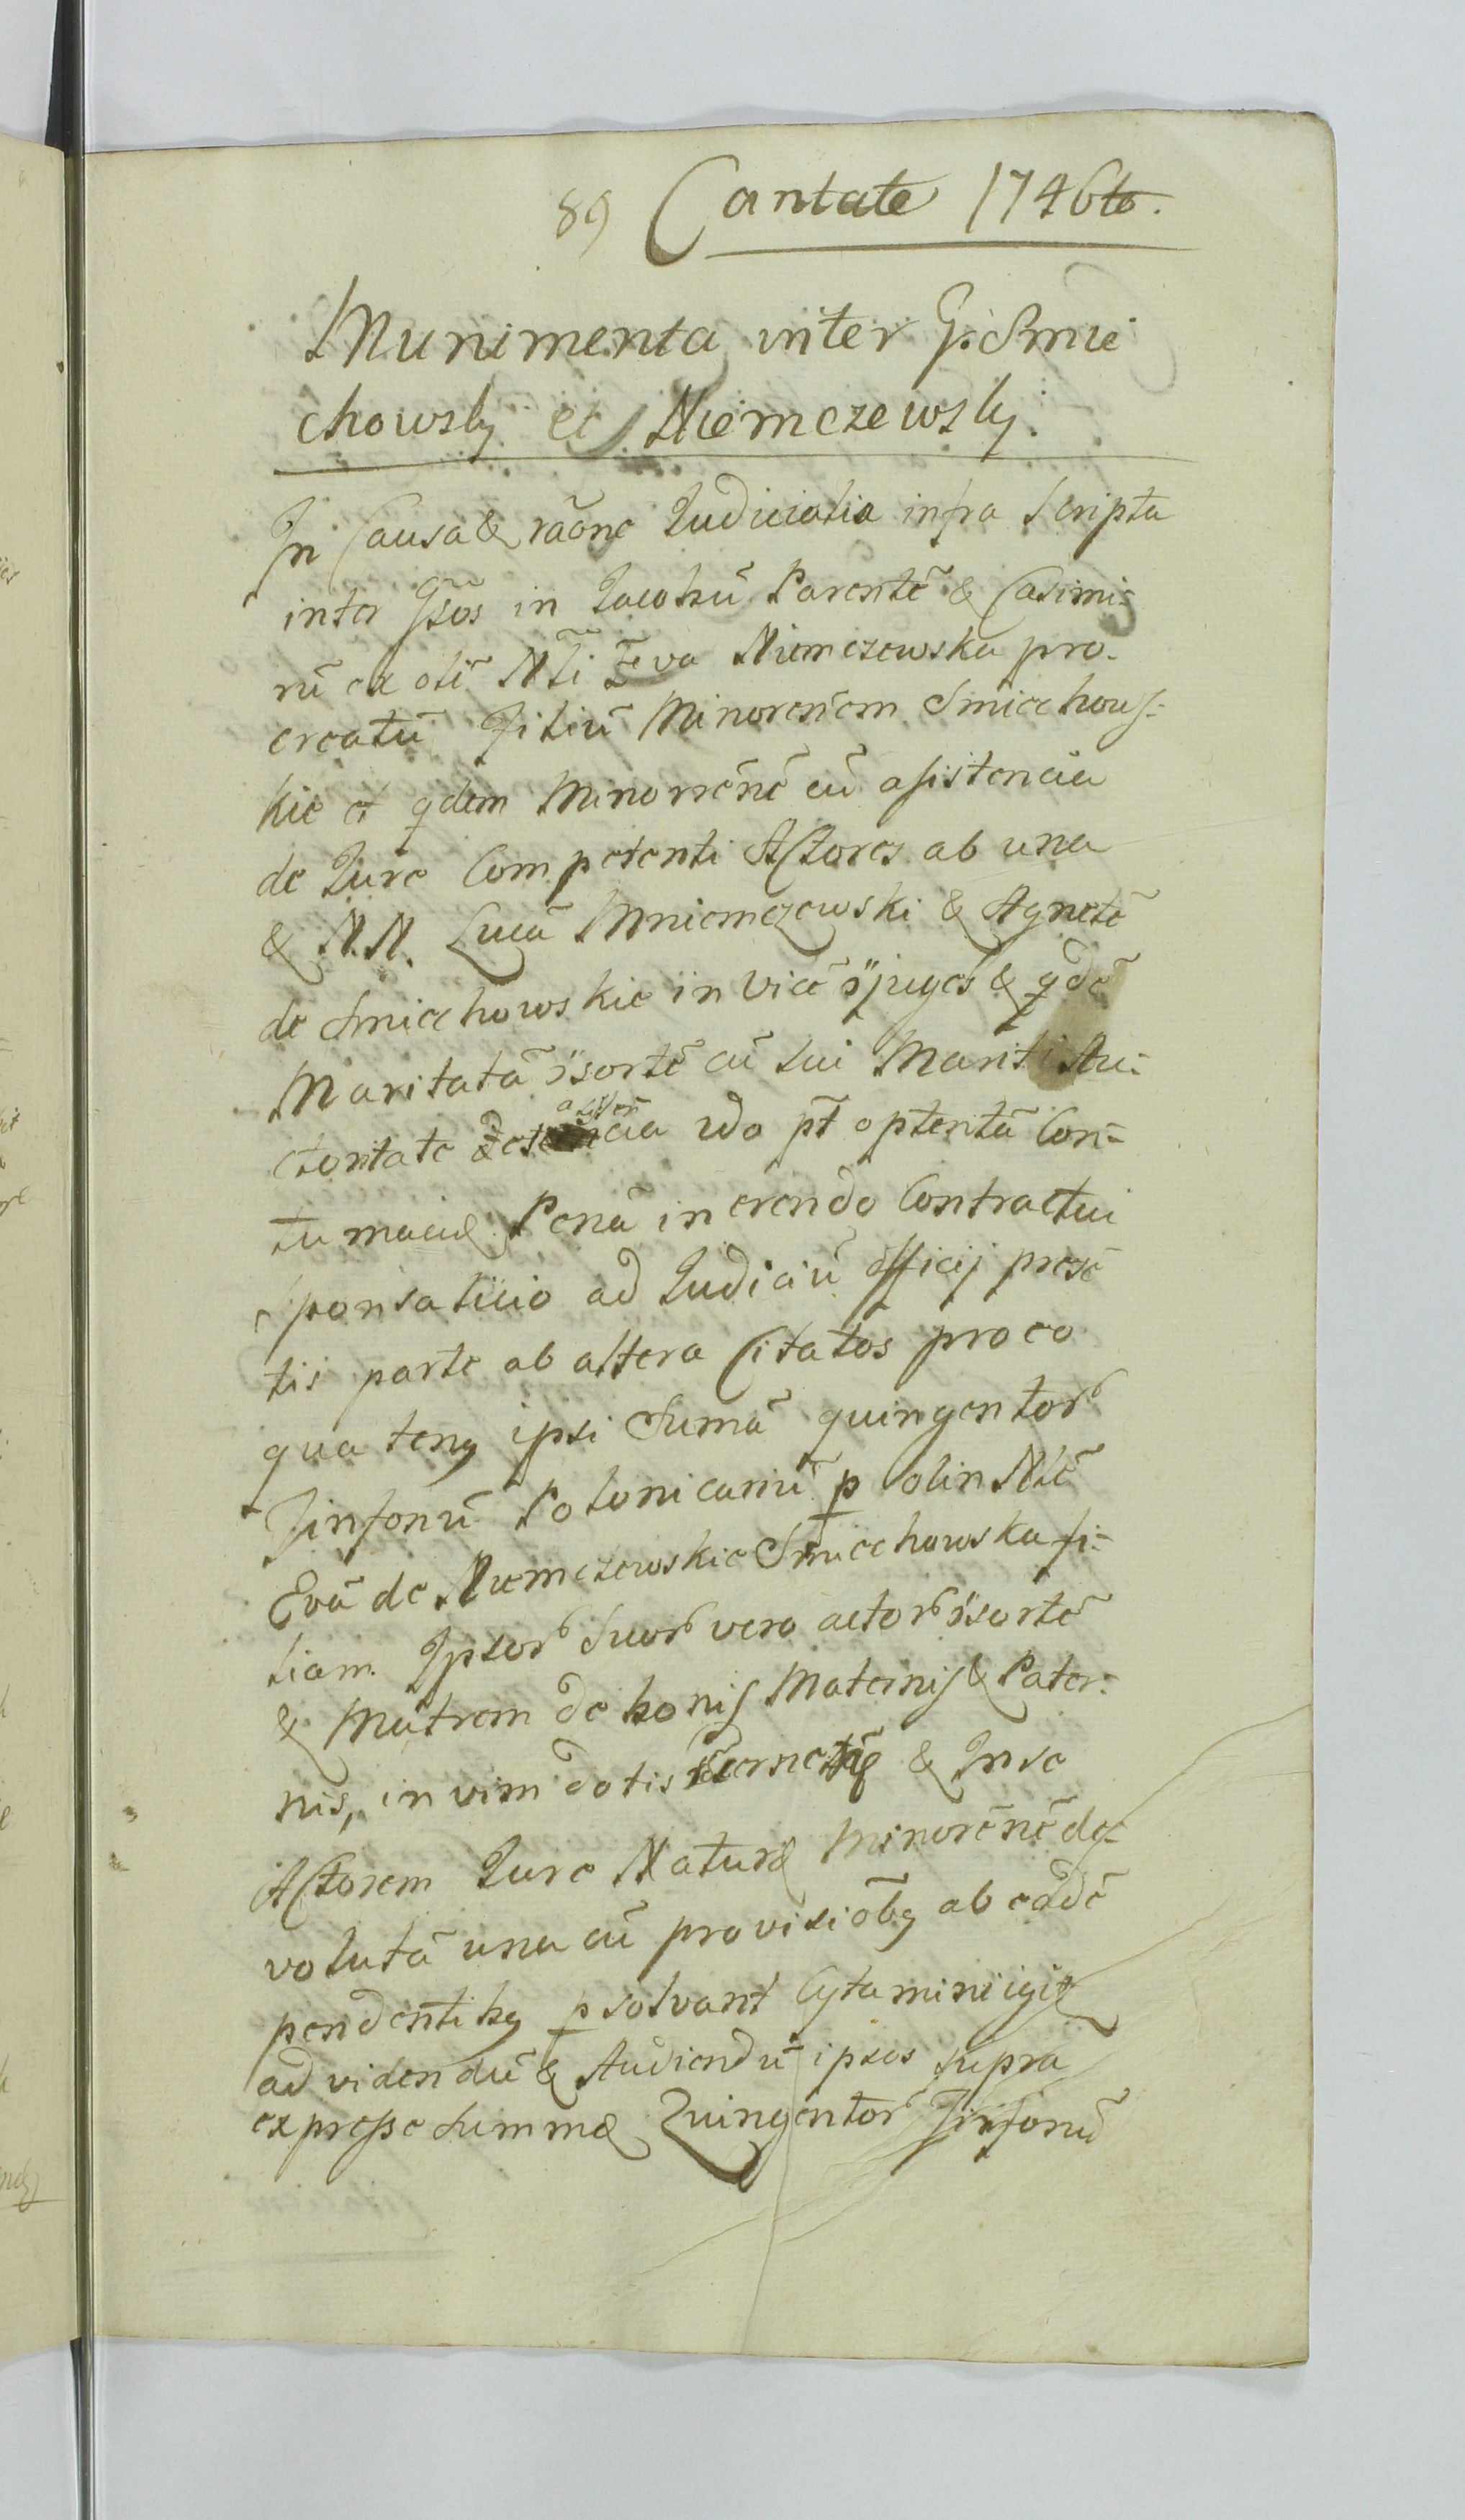 89 Cantate 1746to.
Munimenta inter G. Smie
chowsky et Niemczewsky.
In Causa & raõne Iudicialia infra Scripta
inter Gsos in Iacobū Parentē & Casimi-
rū ex oli Nli Eva Niemczewska pro-
creatū Filiū Minorenem Smiechows-
kie et qdem Minorrēnē cū asistencia
de Iure Competenti Actores ab una
& N.N. Lucā Mniemczewski & Agnetē
de Smiechowskie in vicē ӟjuges & qdē
Maritatā ӟsortē cū sui Mariti Au-
ctoritate cia vdo pt optentā Con-
tumaciæ Penā in erendo Contractui
sponsalicio ad Iudiciū officij presē
tis parte ab altera Citatos pro eo
quatenq ipsi Sumā quingentor
Tinfonū Polonicariū p olin Nlē
Evā de Niemczewskie Smiechowska fi-
liam Ipsor Suor vero actor ӟsortē
& Mātrem de bonis Maternis & Pater-
nis, in vim dotis & In se
Actorem Iure Naturæ Minorēnē de-
volutā una cū provisiōbq ab eadē
pendentibq psolvant Cytamini igit
ad videndū & Audiendū ipsos supra
expresse summæ Quingentor Tinfonū